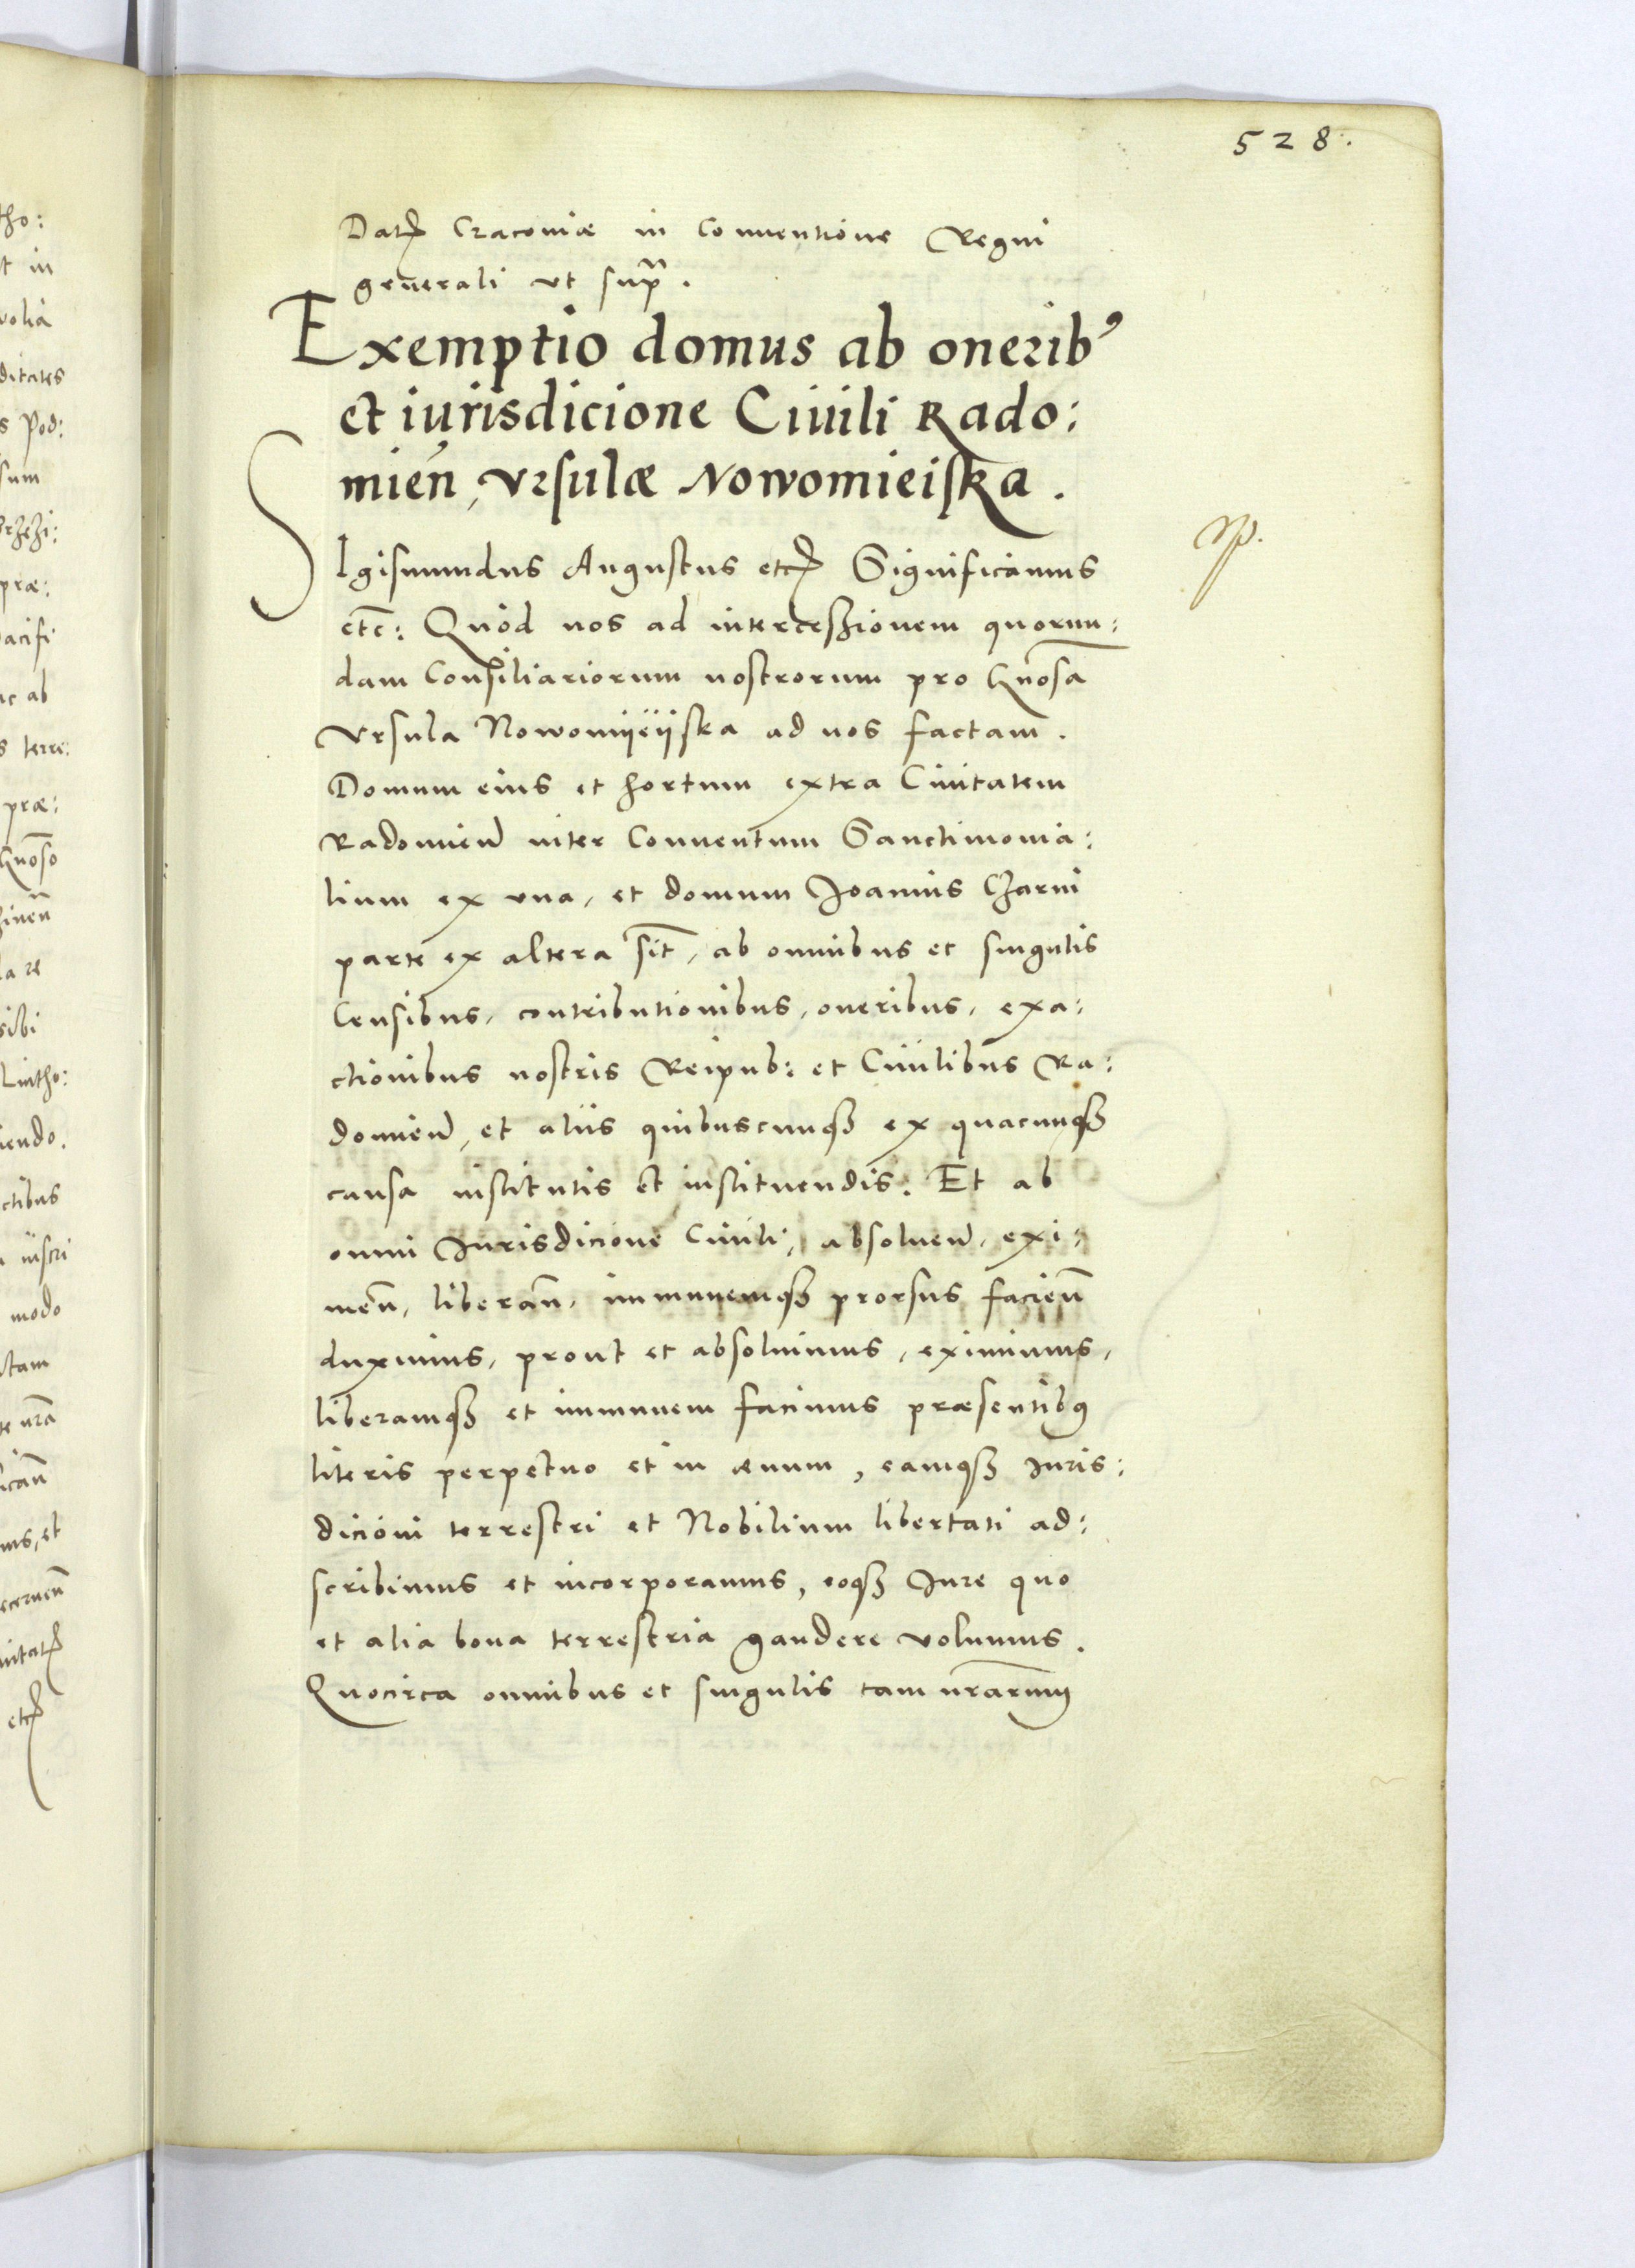 528.
Dat Cracoviæ in Conuentione Regni
generali ut sup.
Exemptio domus ab onerib⁹
et iurisdicione Ciuili Rado:
mien, Vrsulæ Nowomieiska.
SIgismundus Augustus etc Significamus
etc: Quòd nos ad intercessionem quorun:
dam Consiliariorum nostrorum pro Gnosa
Vrsula Nowomyeyska ad nos factam.
Domum eius et hortum extra Ciuitatem
Radomien̄ inter Conuentum Sanctimonia:
lium ex una, et domum Joannis Czarni
parte ex altera sit̄, ab omnibus et singulis
Censibus, contributionibus, oneribus, exa:
ctionibus nostris Reipub: et Ciuilibus Ra:
domien̄, et aliis quibuscunqꝫ ex quacunqꝫ
causa institutis et instituendis. Et ab
omni Jurisdicione Ciuili, absoluen̄, exi:
men̄, liberan̄, immunemqꝫ prorsus facien̄
duximus, prout et absoluimus, eximimus,
liberamqꝫ et immunem facimus præsentibꝰ
literis perpetuo et in æuum, eamqꝫ Juris:
dicioni terrestri et Nobilium libertati ad:
scribimus et incorporamus, eoqꝫ Jure quo
et alia bona terrestria gaudere volumus.
Quocirca omnibus et singulis tam nr̄arum